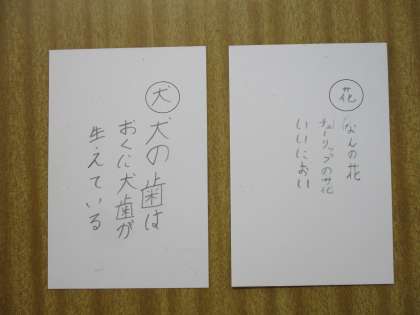 犬
犬の歯は
おくに犬歯が
生えている
花
なんの花
チューリップの花
いいにおい